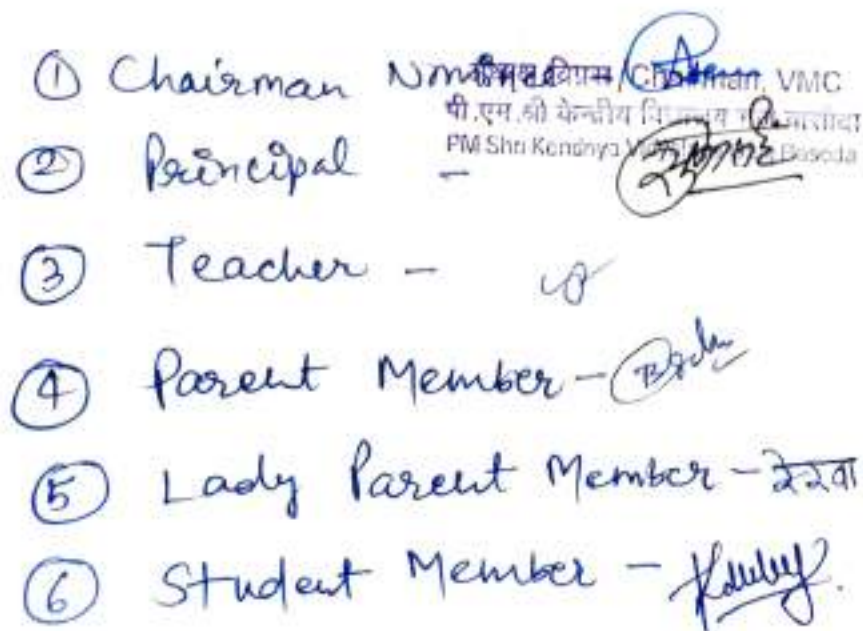 ① Chairman Nominee
अध्यक्ष विप्रस / Chairman, VMC
पी.एम.श्री केन्द्रीय विद्यालय
PM Shri Kendriya Basoda
② Principal -
③ Teacher -
④ Parent Member -
⑤ Lady Parent Member - रेखा
⑥ Student Member -